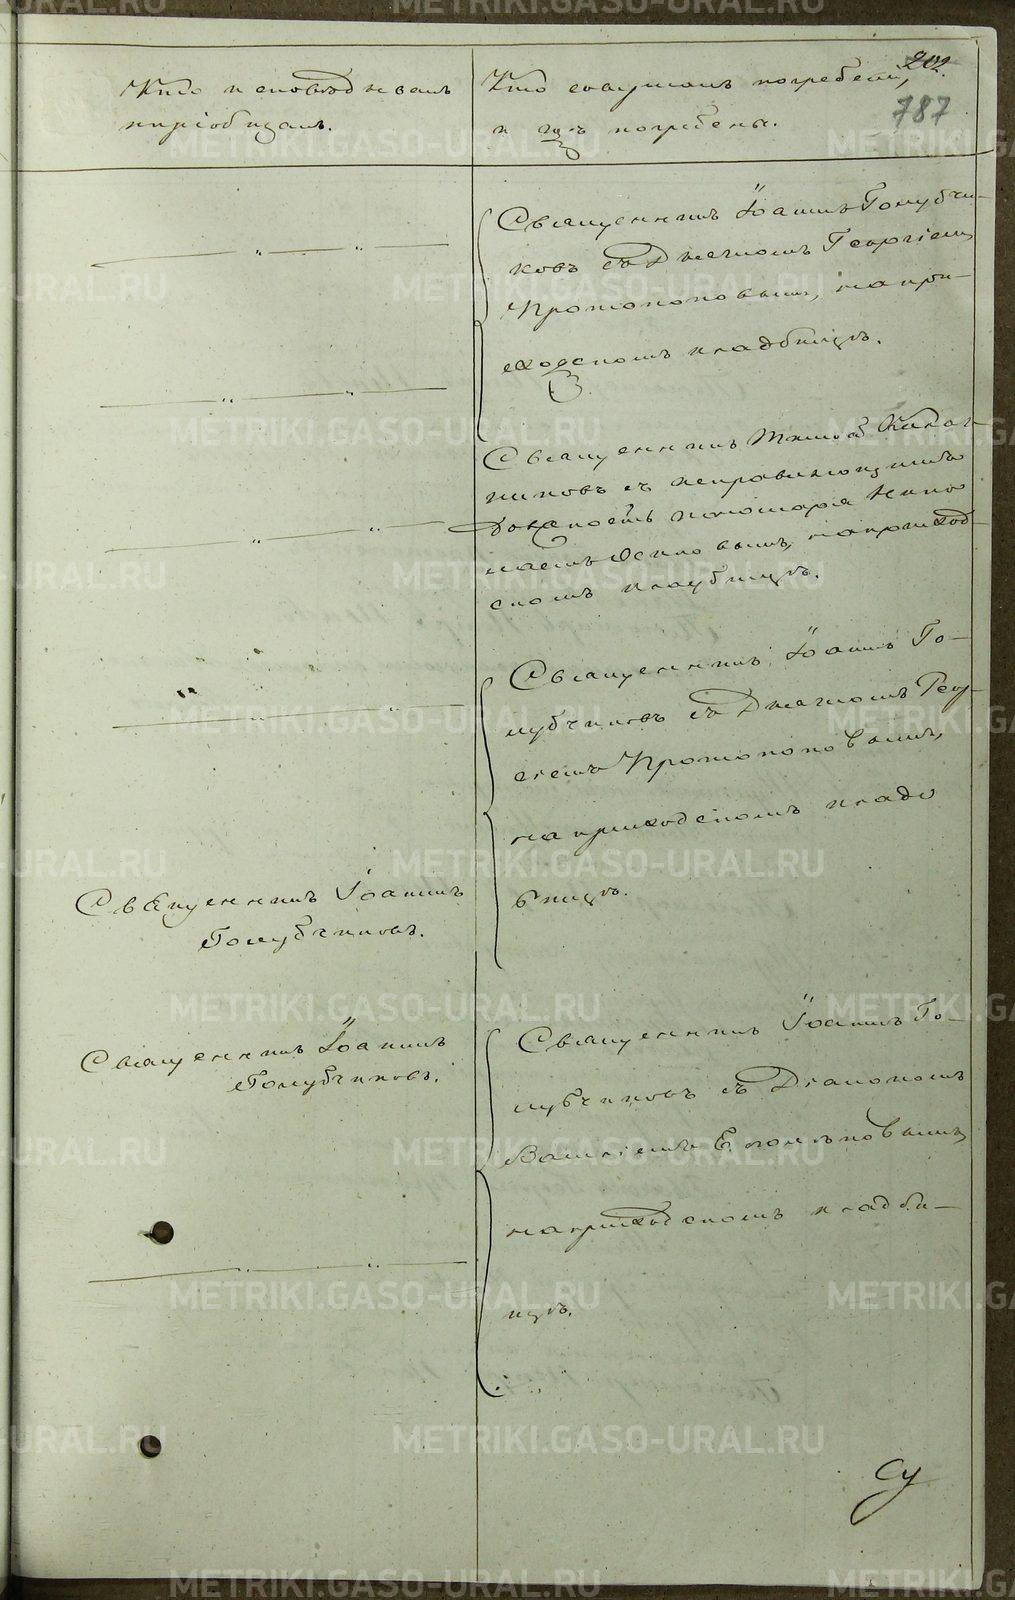 202.
787
Кто исповѣдывалъ
и пріобщалъ.
Кто совершалъ погребеніе,
и гдѣ погребены.
Священникъ Іоаннъ Голубчи-
ковъ съ Дьячкомъ Георгіемъ
Протопоповымъ, на при-
ходскомъ кладбищѣ.
Священникъ
никовъ съ исправляющимъ
должность пономаря
на приход-
скомъ кладбищѣ.
Священникъ Іоаннъ Го-
лубчиковъ съ Дьячкомъ Геор-
гіемъ Протопоповымъ,
на приходскомъ кладо
бищѣ.
Священникъ Іоаннъ
Голубчиковъ.
Священникъ Іоаннъ
Голубчиковъ.
Священникъ Іоаннъ Го-
лубчиковъ съ Діакономъ
Василіемъ
на приходскомъ кладби-
щѣ.
METRIKI.GASO-URAL.RU